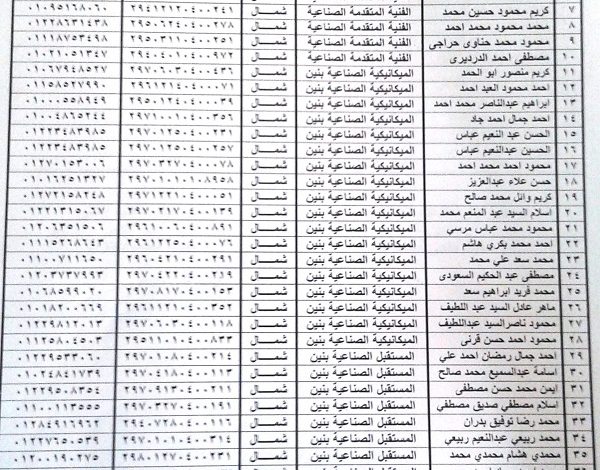 ٧ كريم محمود حسين محمد الفنية المتقدمة الصناعية شمال ٢٩٤١٢١٢٠٤٠٠٢٤١ ٠١٠٩٥١٦٨٠٦٠
٨ محمود محمد محمود احمد الفنية المتقدمة الصناعية شمال ٠١٢٨٧٦٣١٤٣٨
٩ محمود محمد حناوى حراجى الفنية المتقدمة الصناعية شمال ٠١١١٨٧٥٣٤٩٨
١٠ مصطفى احمد الدرديرى الفنية المتقدمة الصناعية شمال ٠١٠٢١٠٥١٣٤٧
١١ كريم منصور ابو الحمد الميكانيكية الصناعية بنين شمال ٢٩٧٠٦٠٣٠٤٠٠٤٣٦ ٠١٠٦٧٩٤٨٥٢٧
١٢ احمد محمود العبد احمد الميكانيكية الصناعية بنين شمال ٠١١٥٨٥٢٧٩٩٠
١٣ ابراهيم عبدالناصر محمد احمد الميكانيكية الصناعية بنين شمال ٠١٠٠٠٥٥٨٩٤٩
١٤ احمد جمال احمد جاد الميكانيكية الصناعية بنين شمال ٢٩٧١٠٠١٠٤٠٠٣٥٦ ٠١٠٠٤٨٦٥٢٤٤
١٥ الحسن عبد النعيم عباس الميكانيكية الصناعية بنين شمال ٢٩٧٠١٢٥٠٤٠٠٢٣١ ٠١٢٢٣٤٨٣٩٨٥
١٦ الحسين عبد النعيم عباس الميكانيكية الصناعية بنين شمال ٠١٢٢٣٤٨٣٩٨٥
١٧ محمود احمد محمد احمد الميكانيكية الصناعية بنين شمال ٢٩٧٠٣٢٧٠٤٠٠٠٧٨ ٠١٢٧٠١٥٣٠٠٦
١٨ حسن علاء عبدالعزيز الميكانيكية الصناعية بنين شمال ٢٩٧٠١٠١٠١٠٨٩٥٨ ٠١٠١٦٢٥١٣٢٧
١٩ كريم وائل محمد صالح الميكانيكية الصناعية بنين شمال ٢٩٧١٢٢١٠٤٠٠٠٥١ ٠١٢٧٢١٥٨٢٤٨
٢٠ اسلام السيد عبد المنعم محمد الميكانيكية الصناعية بنين شمال ٢٩٧٠٢١٧٠٤٠٠١٣٩ ٠١٢٢١٣١٥٠٦٧
٢١ محمود محمد عباس مرسي الميكانيكية الصناعية بنين شمال ٢٩٦١٠٠٦٠٤٠٠٨٩١ ٠١٢٠٦٣٥١٥٠٦
٢٢ احمد محمد بكري هاشم الميكانيكية الصناعية بنين شمال ٢٩٦١٢٢٥٠٤٠٠٠٧١ ٠١١١٥٢٦٨٦٤٣
٢٣ محمد سعد علي محمد الميكانيكية الصناعية بنين شمال ٢٩٦٠٤٢١٠٤٠٠٢٩١ ٠١١٠٠٧١١٦٥٠
٢٤ مصطفى عبد الحكيم السعودى الميكانيكية الصناعية بنين شمال ٢٩٧٠٤٢٢٠٤٠٠٢١٩ ٠١٢٠٣٧٣٧٩٩٣
٢٥ محمد فريد ابراهيم سعد الميكانيكية الصناعية بنين شمال ٢٩٧٠٨١٧٠٤٠٠١٥٣ ٠١٠٦٨٥٩٩٠٢٠
٢٦ ماهر عادل السيد عبد اللطيف الميكانيكية الصناعية بنين شمال ٢٩٦١١٢١٠٤٠٠٣٥٢ ٠١٠١٨٢٠٠٦٦٩
٢٧ محمود ناصر السيد عبداللطيف الميكانيكية الصناعية بنين شمال ٢٩٧٠٦٠٣٠٤٠٠١١٨ ٠١٢٢٩٨١٢٠١٣
٢٨ محمود احمد حسن قرنى الميكانيكية الصناعية بنين شمال ٢٩٥١١٠١٠٤٠٠٨٣٣ ٠١١٢٥٨٠٤٥٠٣
٢٩ احمد جمال رمضان احمد علي المستقبل الصناعية بنين شمال ٢٩٧٠١٠٨٠٤٠٠٢١٤ ٠١٢٢٩٥٣٣٠٦٠
٣٠ اسامة عبدالسميع محمد صالح المستقبل الصناعية بنين شمال ٢٩٧٠٤١٨٠٤٠٠١١٣ ٠١٠٢٤٨٤١٧٣٩
٣١ ايمن محمد حسن مصطفى المستقبل الصناعية بنين شمال ٢٩٧٠٩٠٣٠٤٠٠٢١١ ٠١٢٢٩٥٠٨٣٥٤
٣٢ اسلام مصطفى صديق مصطفى المستقبل الصناعية بنين شمال ٢٩٧٠٣٢٧٠٤٠٠١٩١ ٠١١٠٠١١٣٥٥٥
٣٣ محمد رضا توفيق بدران المستقبل الصناعية بنين شمال ٠١٢٨٤٩١٦٩٦٢
٣٤ محمد ربيعي عبدالنعيم ربيعي المستقبل الصناعية بنين شمال ٢٩٧٠١٠١٠٤٠٠٣١٤ ٠١٢٢٧٦٥٠٥٣٩
٣٥ محمدي هشام محمدي محمد المستقبل الصناعية بنين شمال ٢٩٨٠١٠١٠٤٠٠٢٣١ ٠١٢٠٠١٩٠٢٧٥